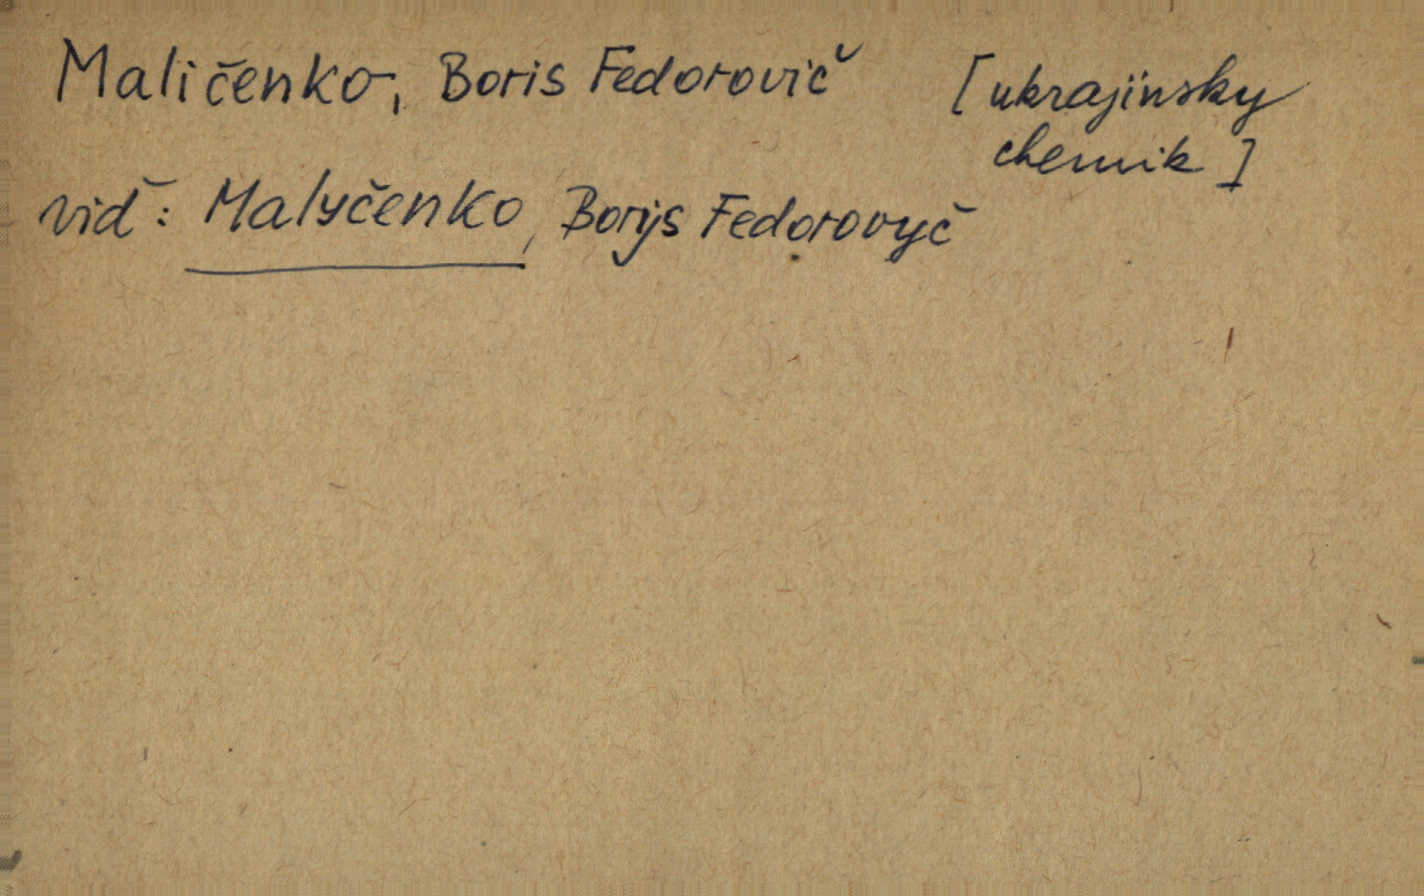 Maličenko, Boris Fedorovič [ukrajinsky
chemik]
viď: Malyčenko, Borys Fedorovyč